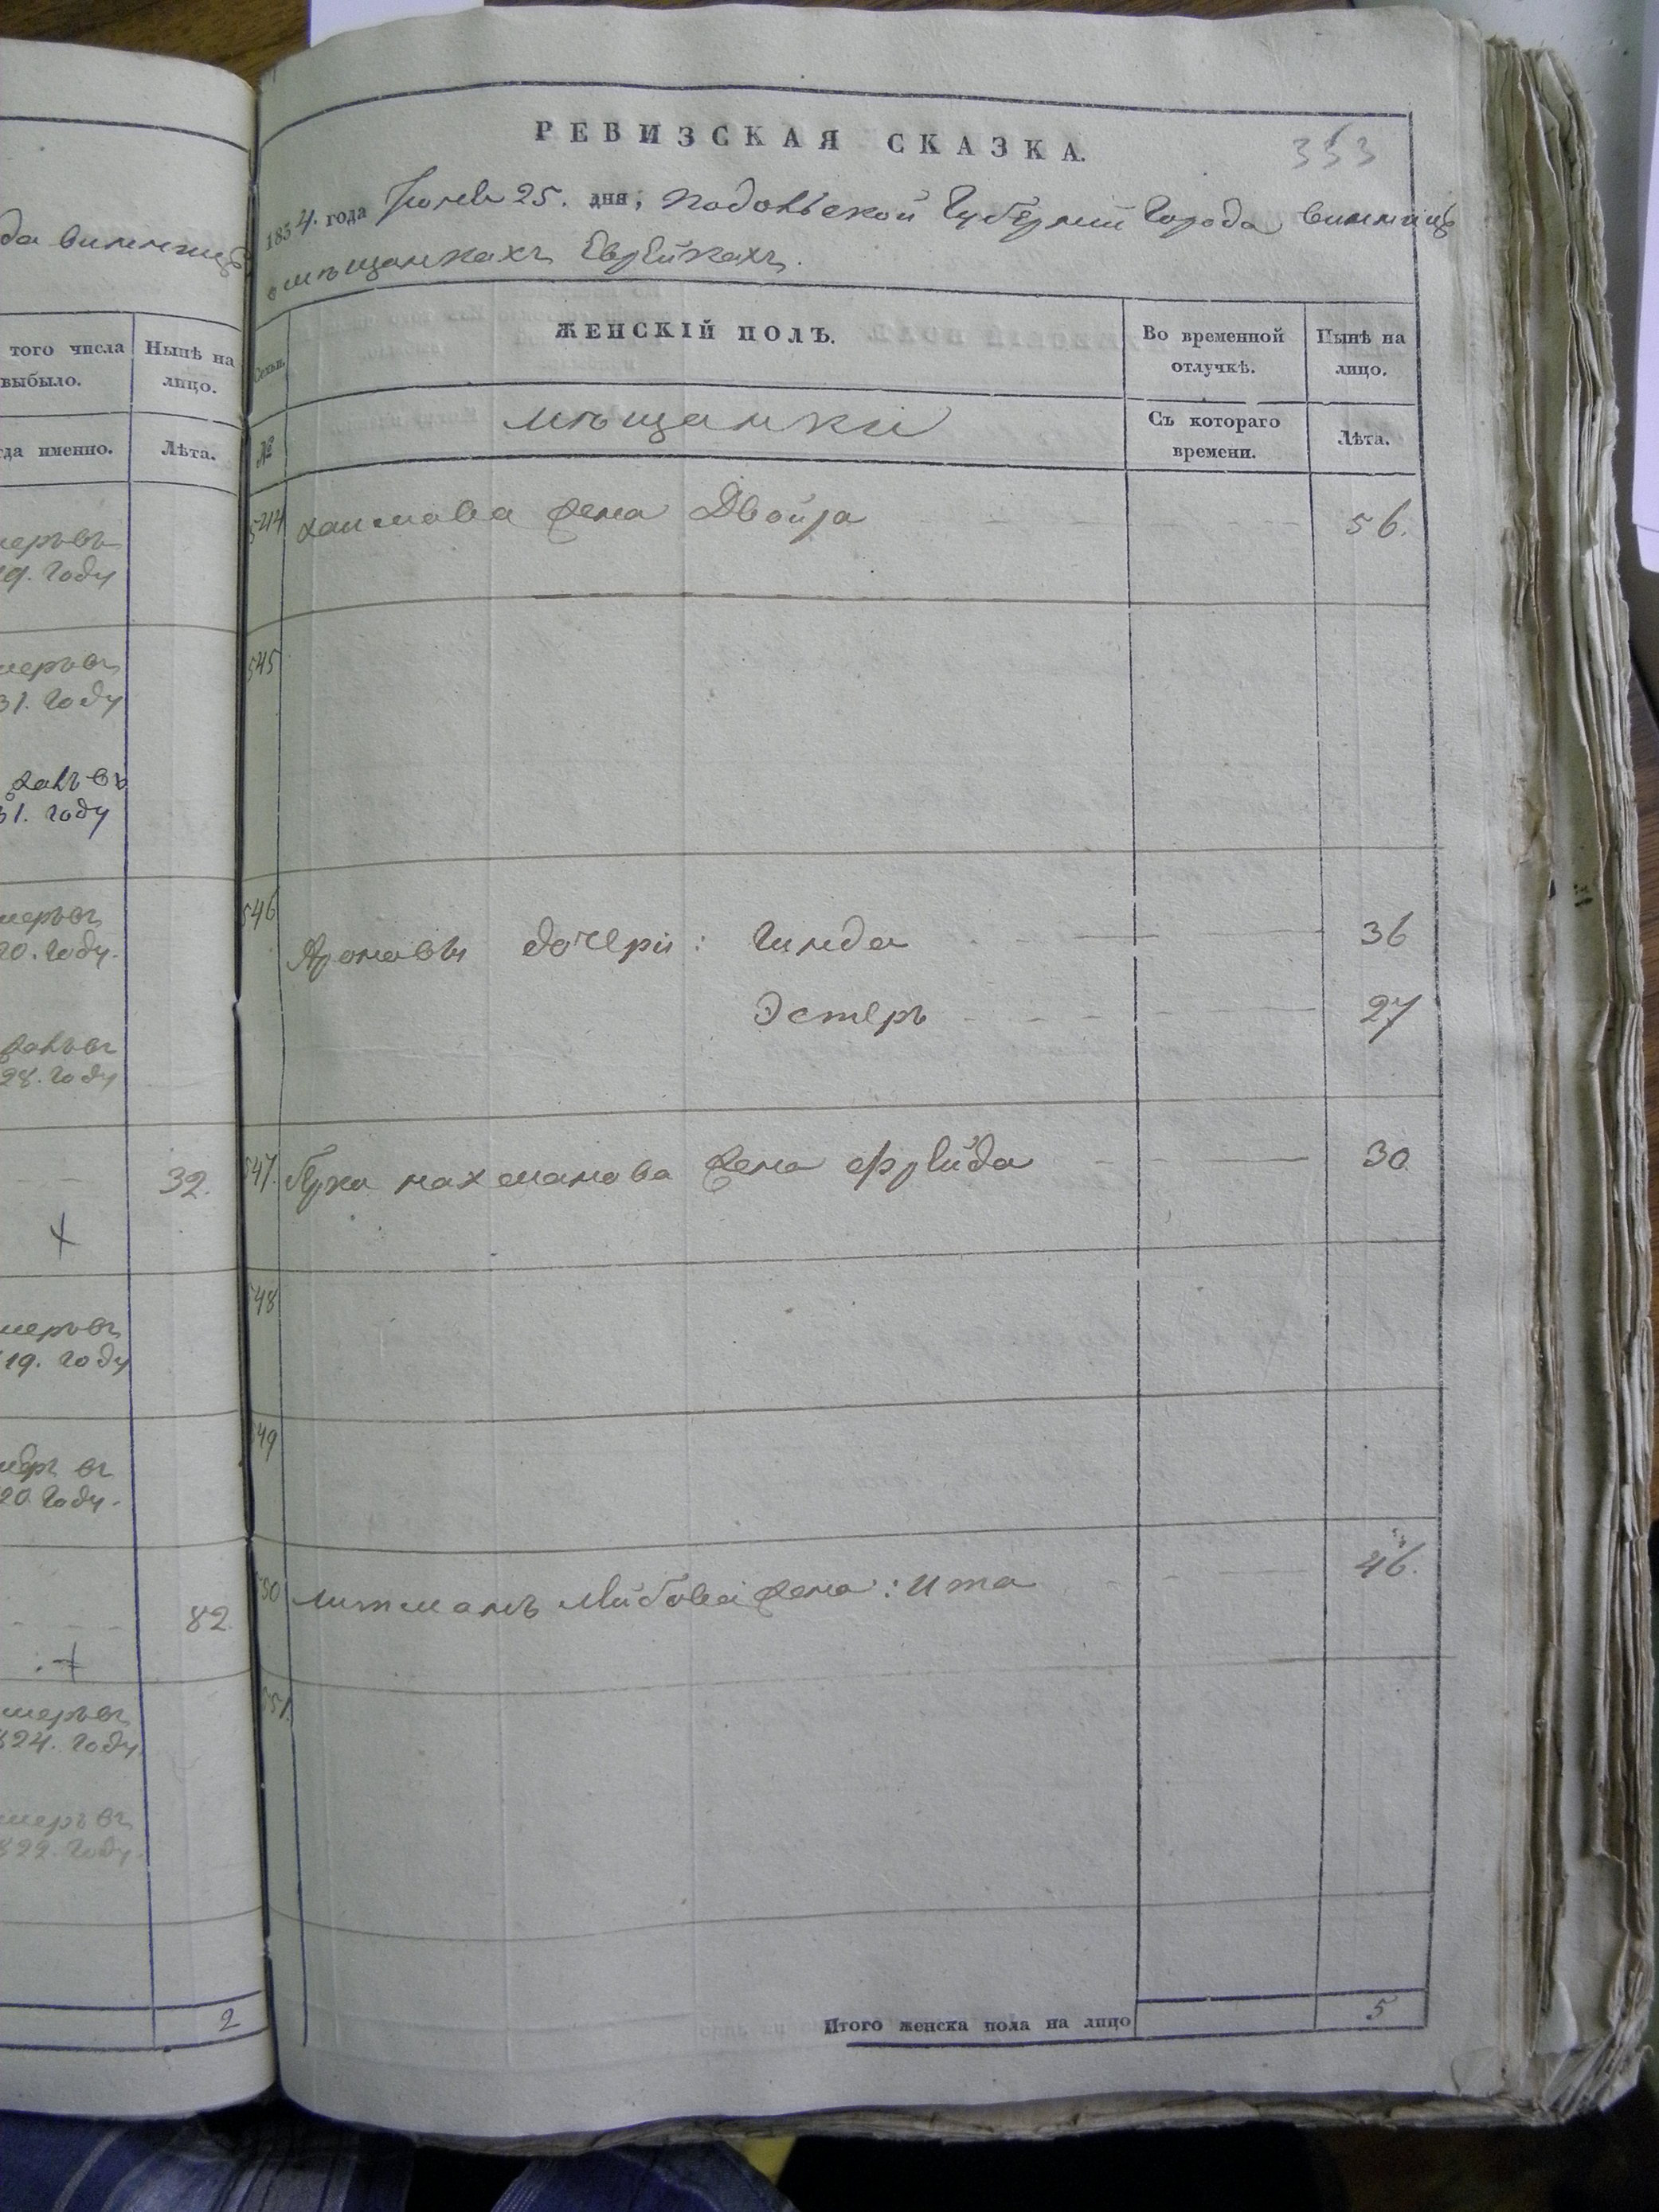 да Винницѣ
того числа
выбыло.
Нынѣ на
лицо.
гда именно.
Лѣта.
меръ въ
19. году
меръ въ
31. году
данъ въ
31. году
меръ въ
20. году.
данъ въ
28. году
32.
меръ въ
19. году
меръ въ
20 году.
82.
меръ въ
824. году
меръ въ
822. году
2
РЕВИЗСКАЯ СКАЗКА.
353
1834. года Іюня 25. дня, Подольской Губерніи Города Винницѣ
о мѣщанкахъ Еврейкахъ.
Семьи.
ЖЕНСКІЙ ПОЛЪ.
Во временной
отлучкѣ.
Нынѣ на
лицо.
№
мѣщанки
Съ котораго
времени.
Лѣта.
544 Хаимова жена Двойра 56.
545
546 Ароновы дочери: Гинда 36
Эстеръ 27
547. Берка Нахманова жена Фрейда 30
548
549
550 Литманъ Лейбова жена: Ита 46.
551.
Итого женска пола на лицо 5